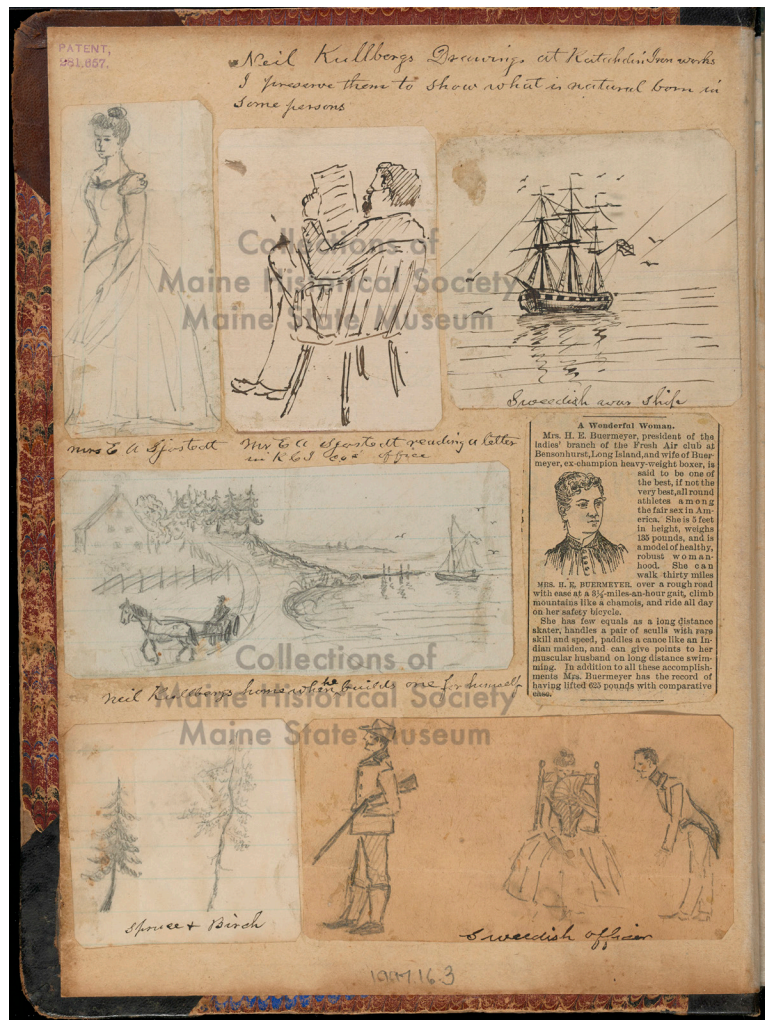 PATENT,
281,857.
Neil Kullbergs Drawings at Katahdin Iron works
I preserve them to show what is natural born in
some persons
Collections of
Maine Historical Society
Maine State Museum
Sweedish war ship
Mrs E A Sjostedt
Mr E A Sjostedt reading a letter
in K I Co's office
A Wonderful Woman.
Mrs. H. E. Buermeyer, president of the
ladies' branch of the Fresh Air club at
Bensonhurst, Long Island, and wife of Buer-
meyer, ex-champion heavy-weight boxer, is
said to be one of
the best, if not the
very best, all round
athletes among
the fair sex in Am-
erica. She is 5 feet
in height, weighs
135 pounds, and is
a model of healthy,
robust woman-
hood. She can
walk thirty miles
MRS. H. E. BUERMEYER. over a rough road
with ease at a 3½-miles-an-hour gait, climb
mountains like a chamois, and ride all day
on her safety bicycle.
She has few equals as a long distance
skater, handles a pair of sculls with rare
skill and speed, paddles a canoe like an In-
dian maiden, and can give points to her
muscular husband on long distance swim-
ming. In addition to all these accomplish-
ments Mrs. Buermeyer has the record of
having lifted 625 pounds with comparative
ease.
Collections of
Neil Kullbergs home when he builds one for himself
Maine Historical Society
Maine State Museum
Spruce & Birch
Sweedish officer
1997.16.3